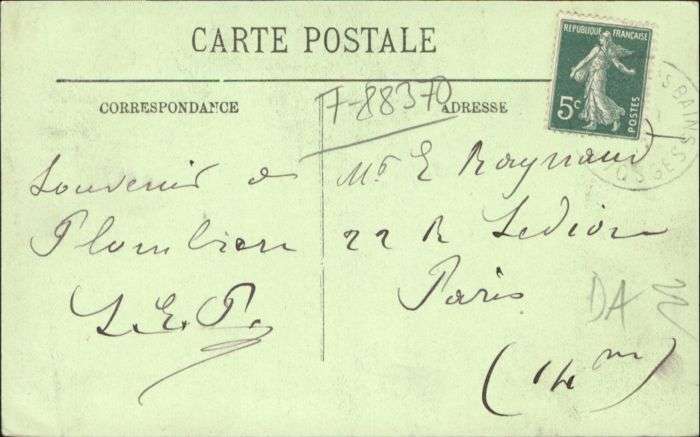 CARTE POSTALE
CORRESPONDANCE
ADRESSE
REPUBLIQUE FRANÇAISE
5c
POSTES
S BAINS
VOSGES
F-88370
Souvenir de
Plombières
L.E.P.
Mr E Raynaud
22 R Ledion
Paris
(14me)
DA